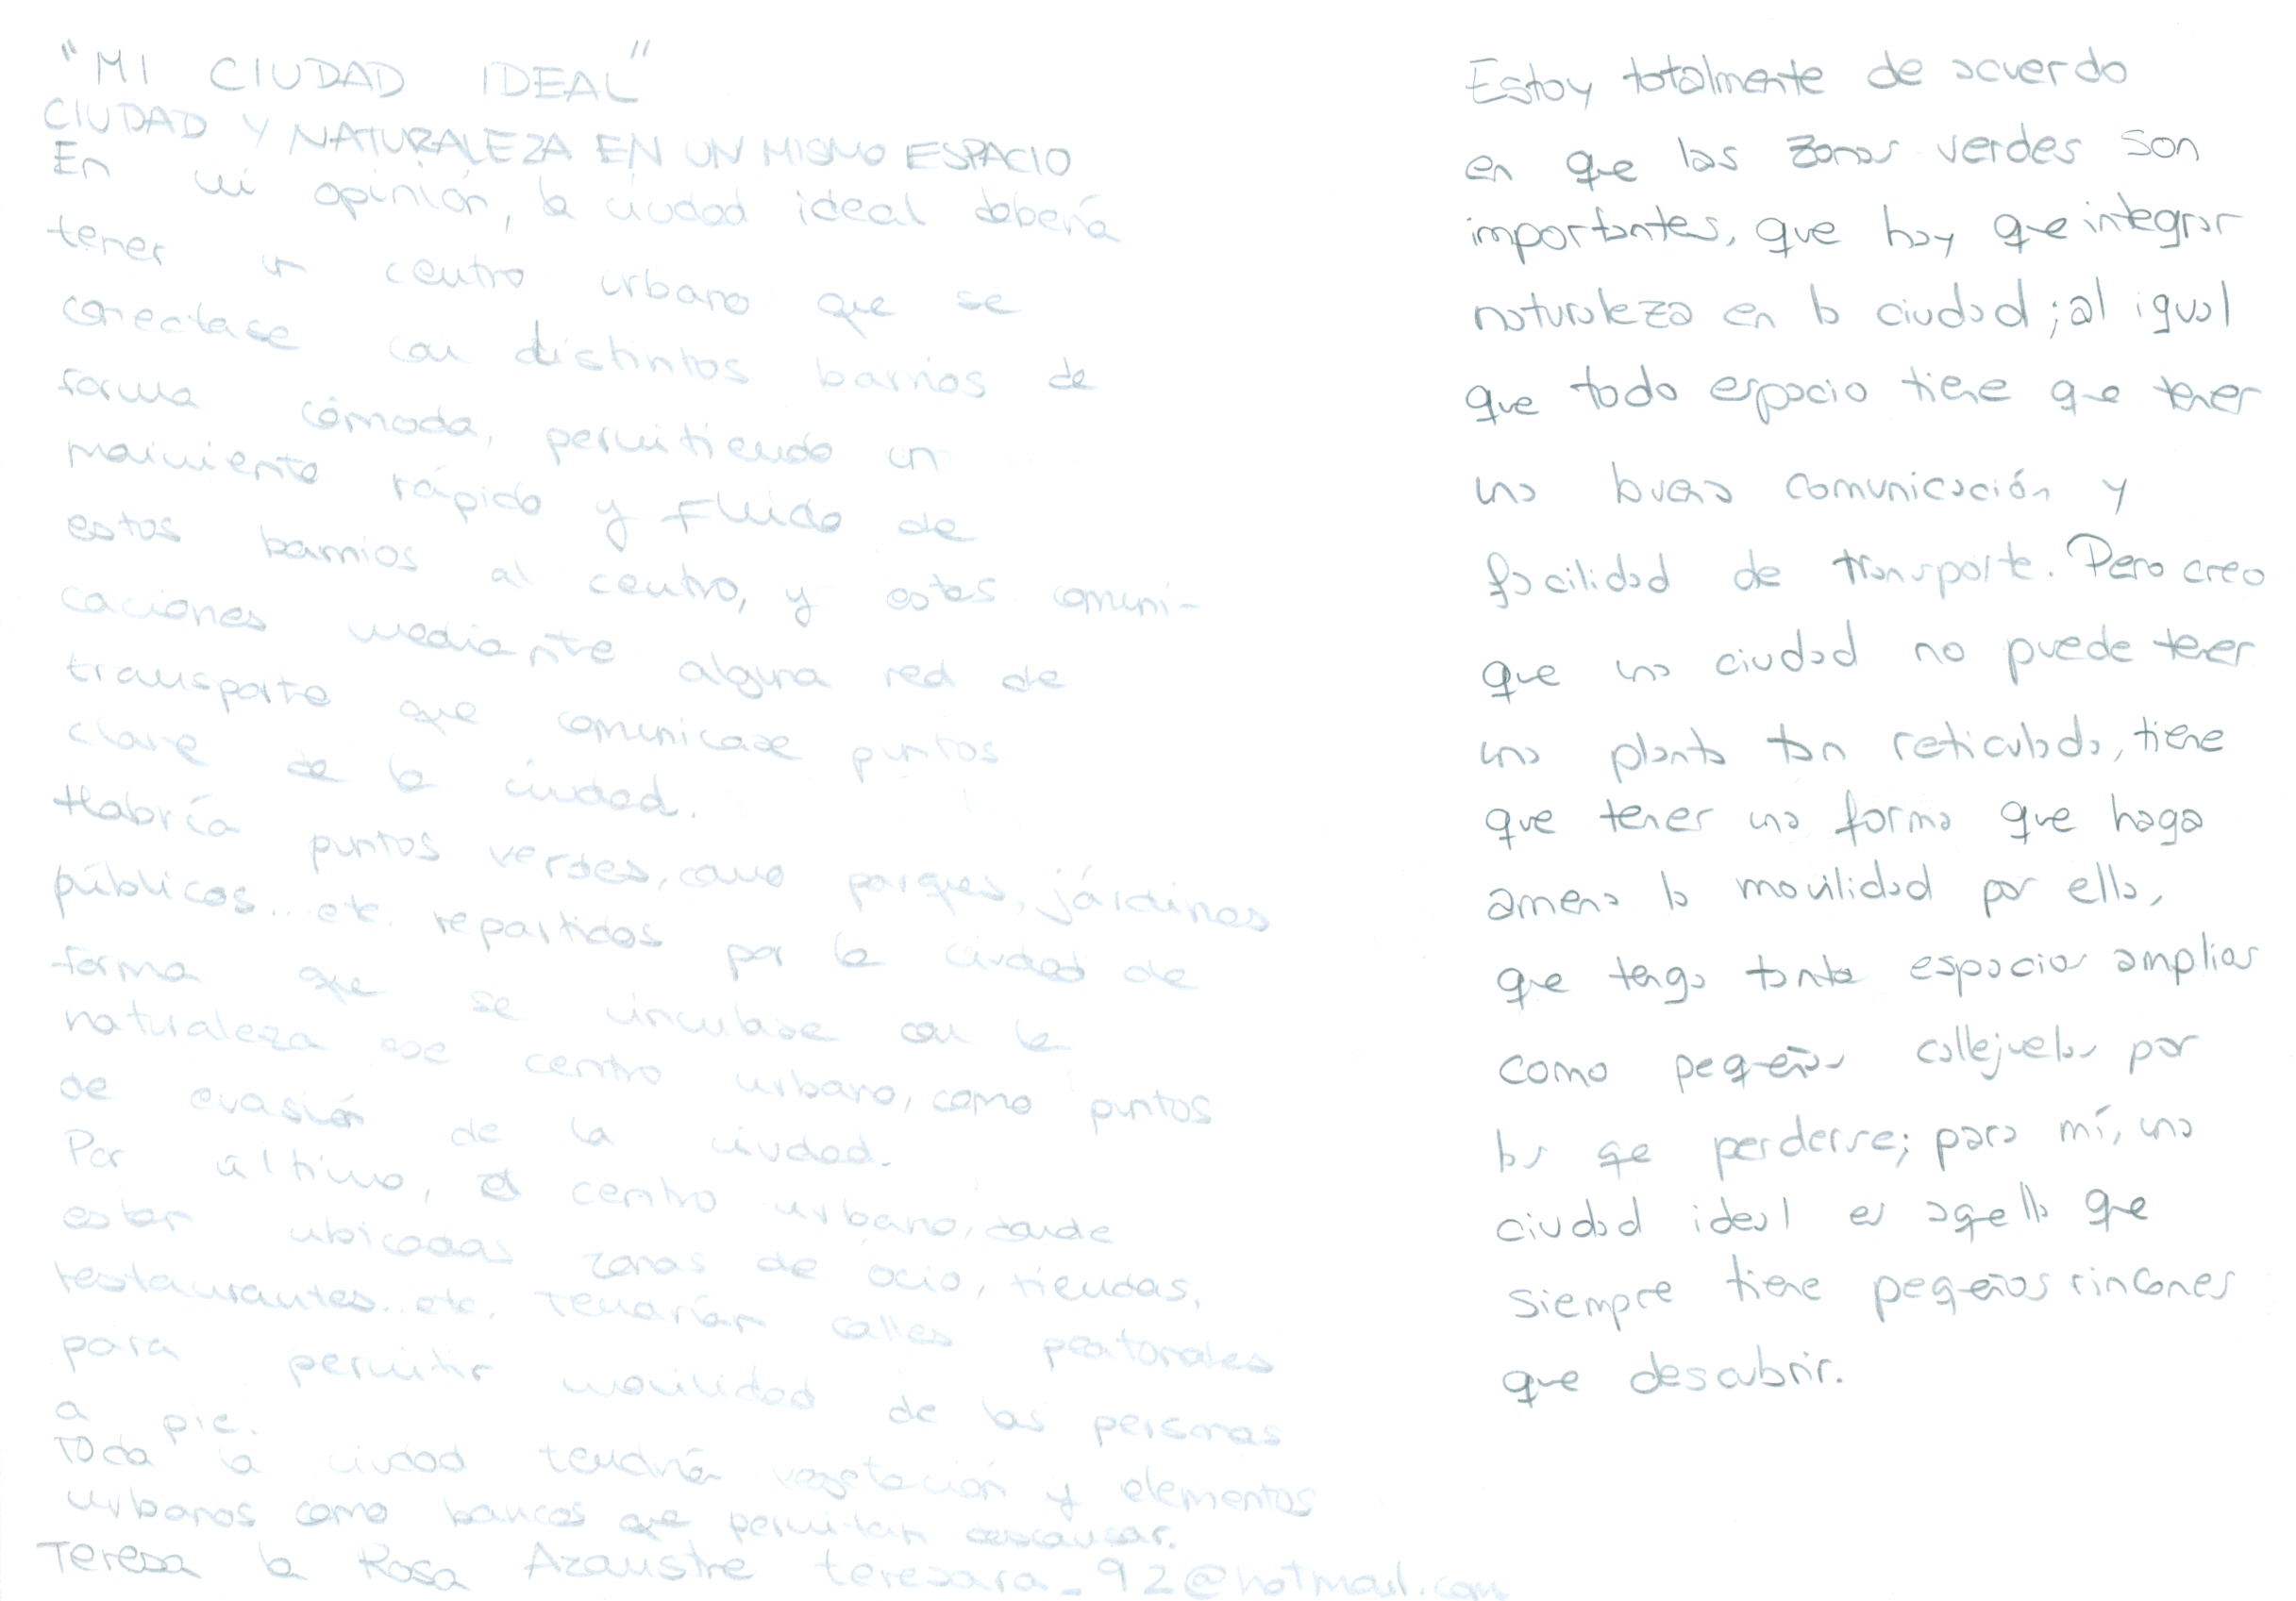 "MI CIUDAD IDEAL"
CIUDAD Y NATURALEZA EN UN MISMO ESPACIO
En mi opinión, la ciudad ideal debería
tener un centro urbano que se
conectase con distintos barrios de
forma cómoda, permitiendo un
movimiento rápido y fluido de
estos barrios al centro, y estas comuni-
caciones mediante alguna red de
transporte que comunicase puntos
clave de la ciudad.
Habría puntos verdes, como parques, járdines
públicos.. etc. repartidos por la ciudad de
forma que se vinculase con la
naturaleza ese centro urbano, como puntos
de evasión de la ciudad.
Por último, el centro urbano, donde
estan ubicadas zonas de ocio, tiendas,
restaurantes.. etc. Tendrían calles peatonales
para permitir movilidad de las personas
a pie.
Toda la ciudad tendría vegetación y elementos
urbanos como bancos que permitan descansar.
Teresa la Rosa Azaustre teresara_92@hotmail.com
Estoy totalmente de acuerdo
en que las zonas verdes son
importantes, que hay que integrar
naturaleza en la ciudad; al igual
que todo espacio tiene que tener
una buena comunicación y
facilidad de transporte. Pero creo
que una ciudad no puede tener
una planta tan reticulada, tiene
que tener una forma que haga
amena la movilidad por ella,
que tenga tanto espacios amplios
como pequeñas callejuelas por
las que perderse; para mí, una
ciudad ideal es aquella que
siempre tiene pequeños rincones
que descubrir.